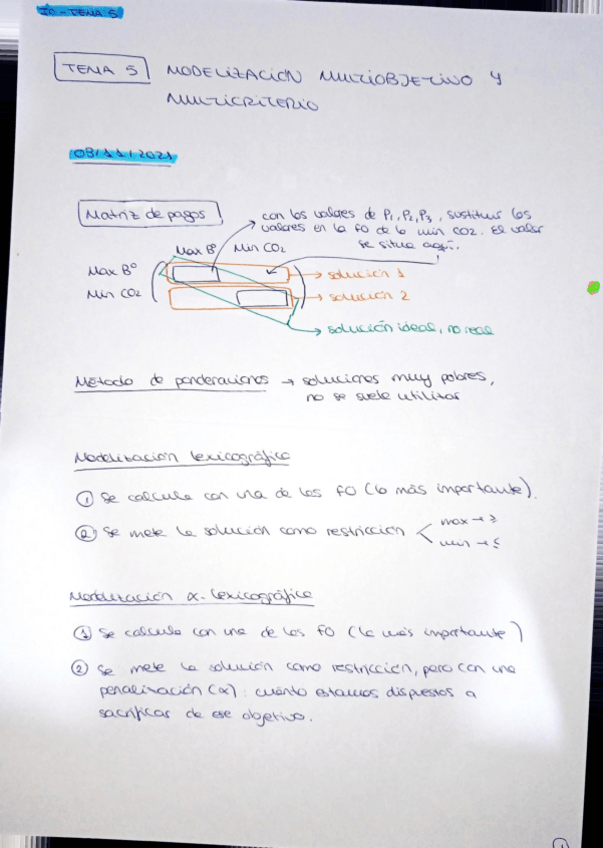 IO - TEMA 5
TEMA 5 MODELIZACIÓN MULTIOBJETIVO Y
MULTICRITERIO
03/11/2021
Matriz de pagos
con los valores de P1, P2, P3, sustituir los
valores en la FO de la min CO2. El valor
se situa aquí.
Max Bº Min CO2
Max Bº
Min CO2
solución 1
solución 2
solución ideal, no real
Método de ponderaciones → soluciones muy pobres,
no se suele utilizar
Modelización lexicográfica
① Se calcula con una de las FO (la más importante).
② Se mete la solución como restricción
max → ≥
min → ≤
Modelización α-lexicográfica
① Se calcula con una de las FO (la más importante)
② Se mete la solución como restricción, pero con una
penalización (α): cuánto estamos dispuestos a
sacrificar de ese objetivo.
1